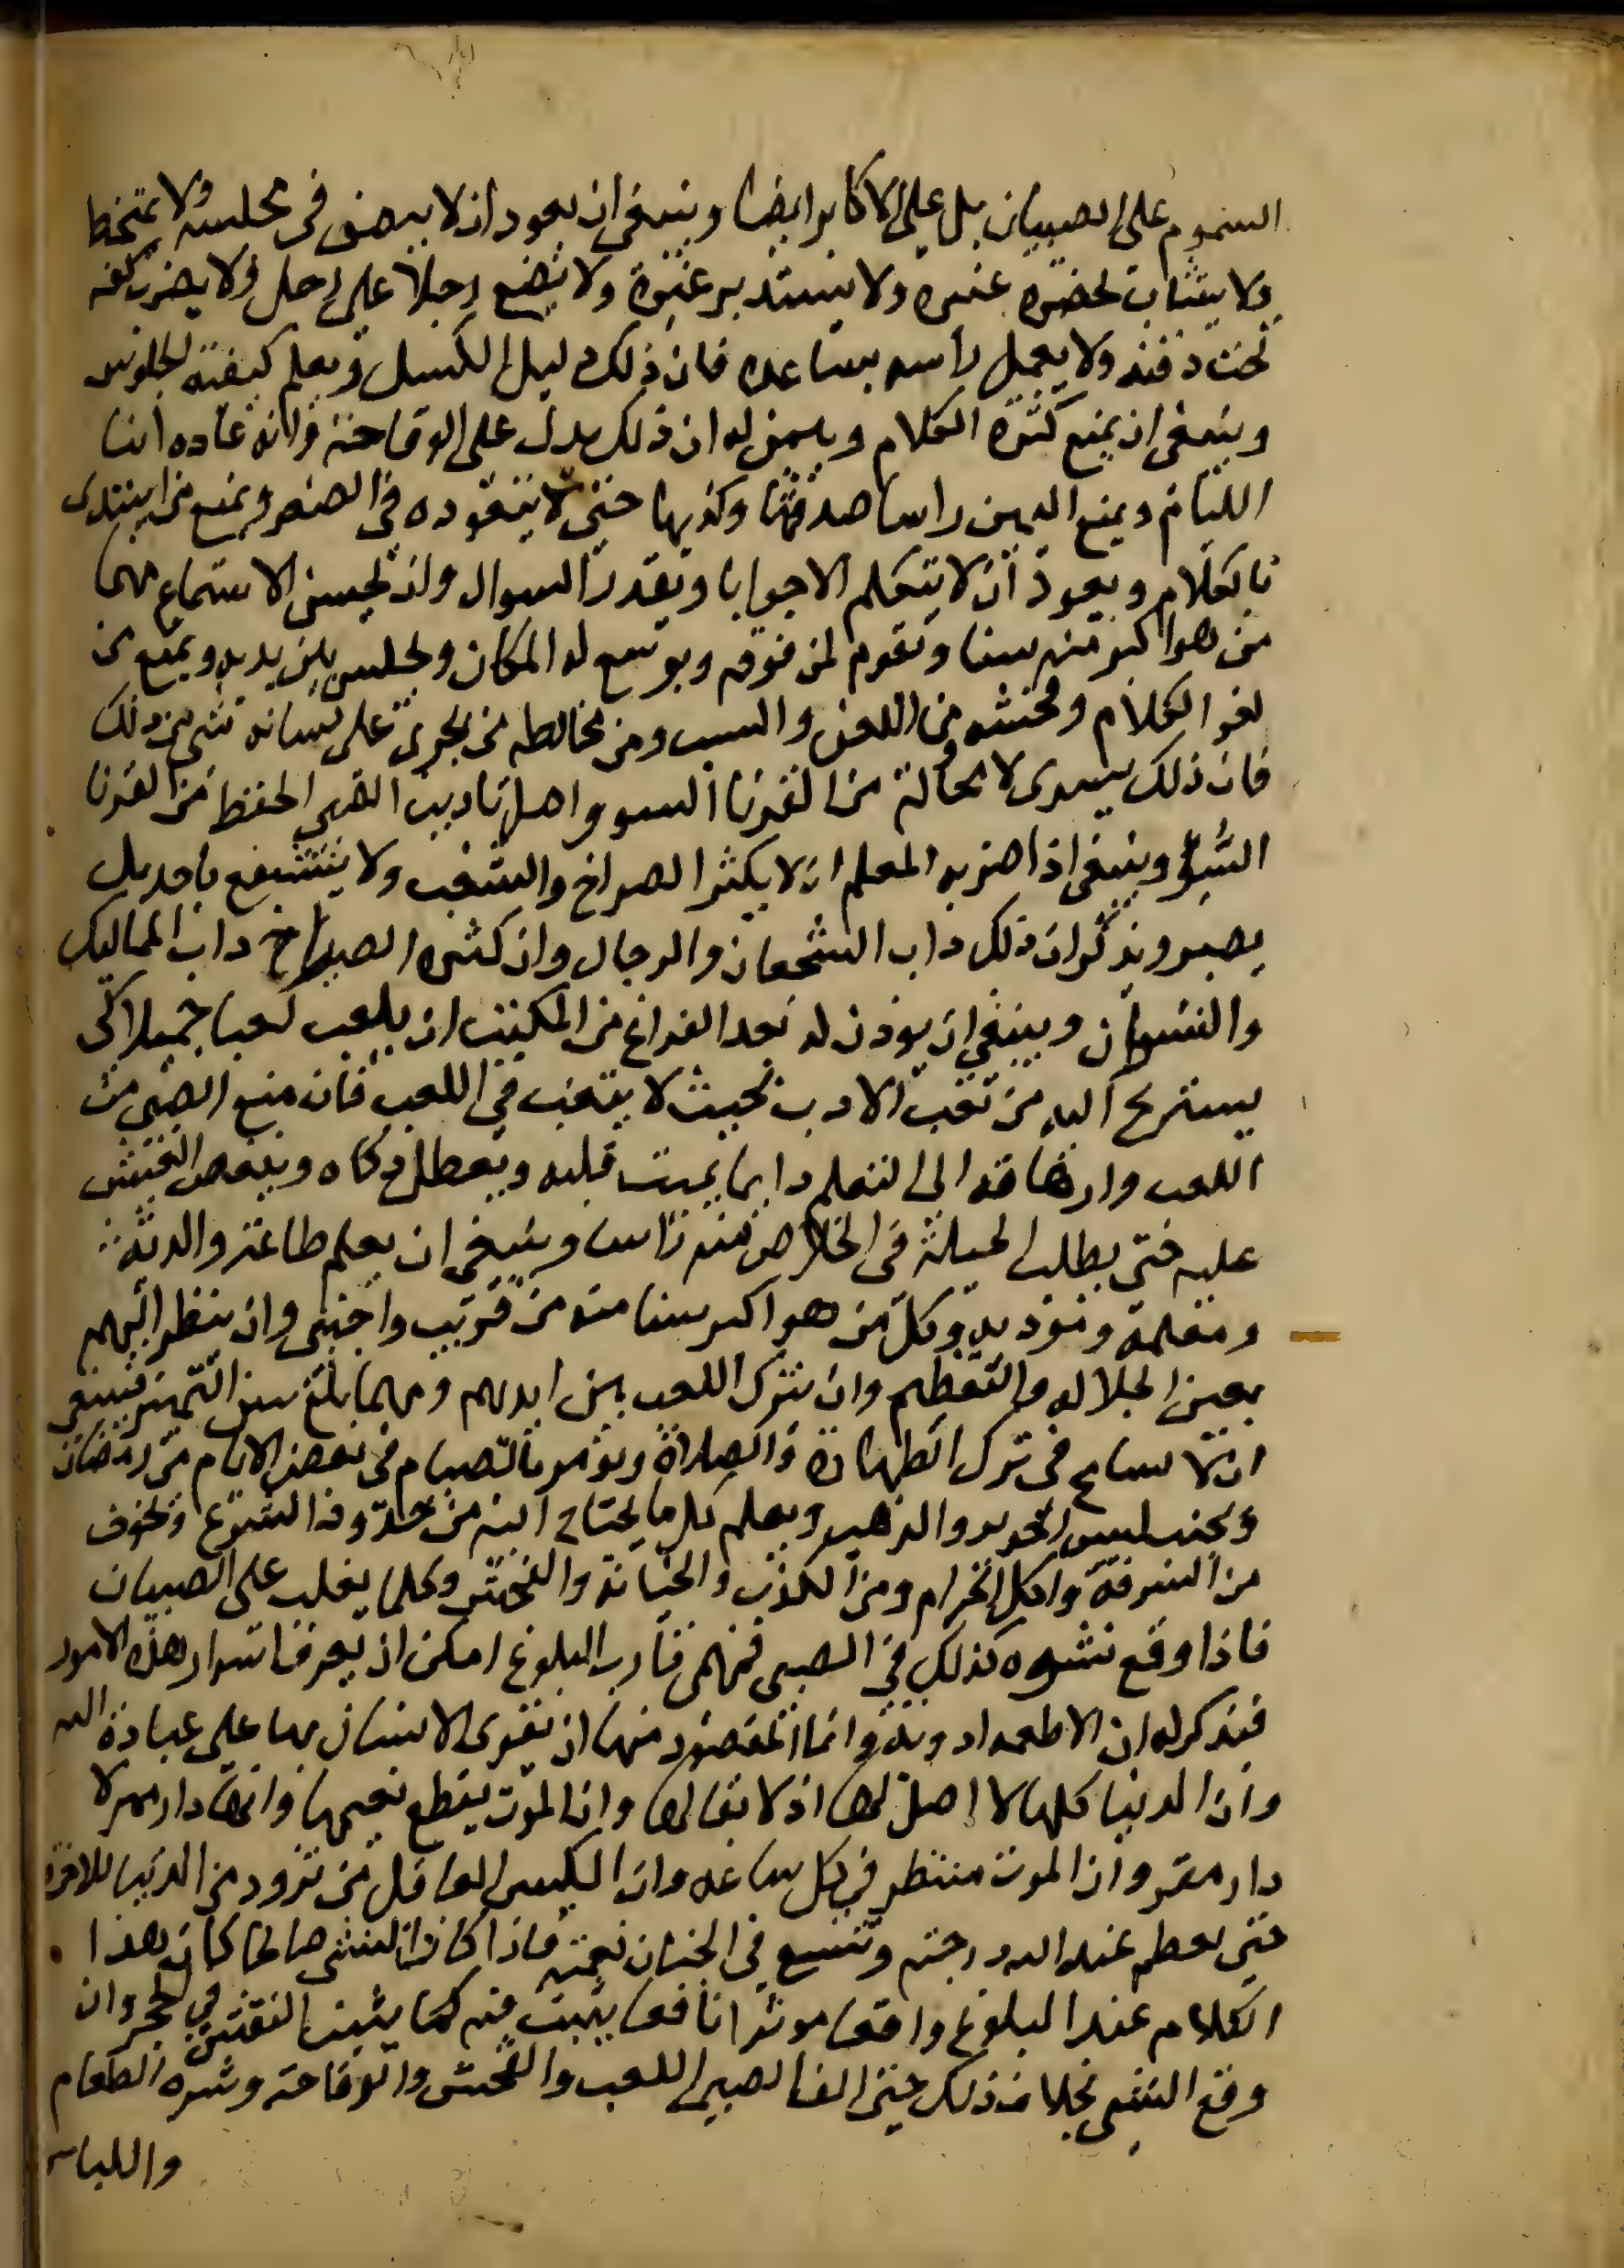 السموم على الصبيان بل على الاكابر ايضا وينبغي ان يعود ان لا يبصق في مجلسه ولا يتمخط
ولا يتثاب بحضرة غيره ولا يستدبر غيره ولا يضع رجلا على رجل ولا يضرب كفه
تحت ذقنه ولا يعمل راسه بساعده فان ذلك دليل الكسل ويعلم كيفية الجلوس
وينبغي ان يمنع كثرة الكلام ويبين له ان ذلك يدل على الوقاحة وانه عادة ابنا
اللئام ويمنع اليمين راسا صدقها وكذبها حتى لا يتعوده في الصغر ويمنع من ان يبتدى
بالكلام ويعود ان لا يتكلم الا جوابا وبقدر السوال وان يحسن الاستماع مهما
من هو اكبر منه سنا ويقوم لمن فوقه ويوسع له المكان ويجلس بين يديه ويمنع من
لغو الكلام وفحشه من اللعن والسب ومن مخالطه من يجرى على لسانه شى من ذلك
فان ذلك يسرى لا محالة من القرنا السوء واصل تاديب الصبي الحفظ من القرنا
السوء وينبغي اذا ضربه المعلم ان لا يكثر الصراخ والشغب ولا يتشفع باحد بل
يصبر ويذكر ان ذلك داب الشجعان والرجال وان كثرة الصراخ داب المماليك
والنسوان وينبغي ان يوذن له بعد الفراغ من المكتب ان يلعب لعبا جميلا كى
يستريح اليه من تعب الادب بحيث لا يتعب في اللعب فان منع الصبي من
اللعب وارهاقه الى التعلم دايما يميت قلبه ويبطل ذكاه وينغص العيش
عليه حتى يطلب الحيلة في الخلاص منه راسا وينبغي ان يعلم طاعة والديه
ومعلمه ومؤدبه وكل من هو اكبر سنا منه من قريب واجنبي وان ينظر اليهم
بعين الجلاله والتعظيم وان يترك اللعب بين ايديهم ومهما بلغ سن التمييز فينبغي
ان لا يسامح في ترك الطهارة والصلاة ويؤمر بالصيام في بعض الايام من رمضان
ويجنب لبس الحرير والذهب ويعلم كل ما يحتاج اليه من حدود الشرع ويخوف
من السرقة واكل الحرام ومن الكذب والخيانة والفحش وكلما يغلب على الصبيان
فاذا وقع نشوه كذلك في الصبى فمهمى قارب البلوغ امكن ان يعرف اسرار هذه الامور
فيذكر له ان الاطعمه ادويه وانما المقصود منها ان يقوى الانسان بها على عبادة الله
وان الدنيا كلها لا اصل لها اذ لا بقا لها وان الموت يقطع نعيمها وانها دار ممر لا
دار مقر وان الموت منتظر في كل ساعه وان الكيس العاقل من تزود من الدنيا للاخرة
حتى يعظم عند الله درجته وتتسع في الجنان نعمته فاذا كان النشى صالحا كان هذا
الكلام عند البلوغ واقعا موثرا نافعا يثبت فيه كما يثبت النقش في الحجر وان
وقع النشى بخلاف ذلك حتى الف الصبى اللعب والفحش والوقاحه وشره الطعام
واللباس